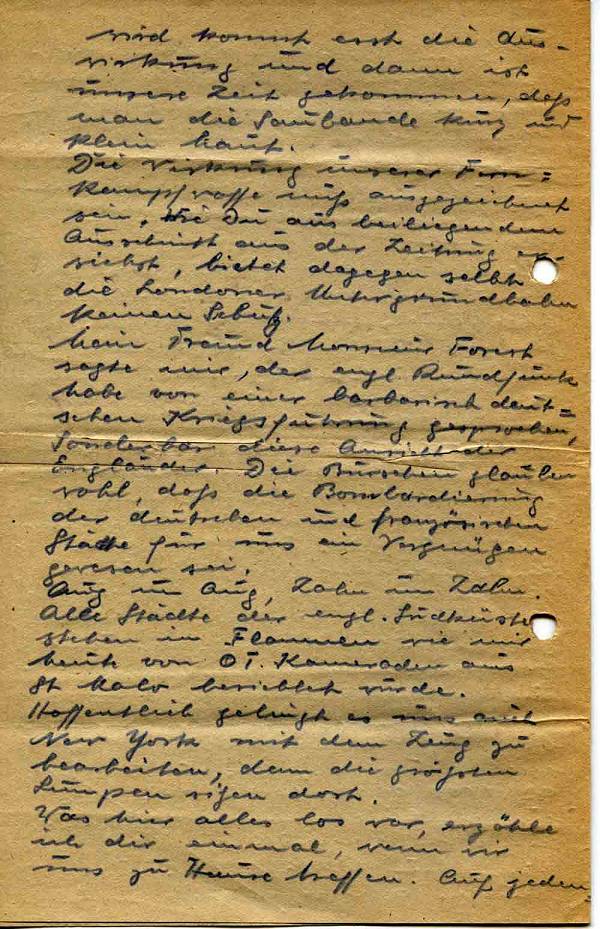 wird kommt erst die Aus-
wirkung und dann ist
unsere Zeit gekommen, daß
man die Saubande kurz und
klein haut.
Die Wirkung unserer Fern=
kampfwaffe muß ausgezeichnet
sein, wie Du aus beiliegendem
Ausschnitt aus der Zeitung er-
siehst, bietet dagegen selbst
die Londoner Untergrundbahn
keinen Schutz.
Mein Freund Monsieur Forest
sagte mir, der engl Rundfunk
habe von einer barbarisch deut=
schen Kriegsführung gesprochen,
Sonderbar diese Ansicht der
Engländer. Die Burschen glauben
wohl, daß die Bombardierung
der deutschen und französischen
Städte für uns ein Vergnügen
gewesen sei.
Aug um Aug, Zahn um Zahn.
Alle Städte der engl. Südküste
stehen in Flammen wie mir
heute von OT. Kameraden aus
St Malo berichtet wurde.
Hoffentlich gelingt es uns auch
New York mit dem Zeug zu
bearbeiten, denn die größten
Lumpen sitzen dort.
Was hier alles los war, erzähle
ich dir einmal, wenn wir
uns zu Hause treffen. Auf jeden=